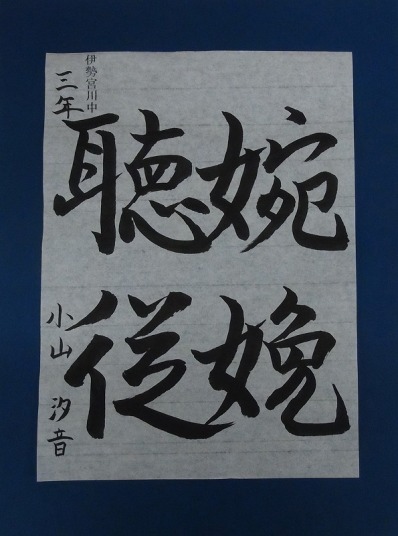 婉娩
聴従
伊勢宮川中
三年
小山 汐音